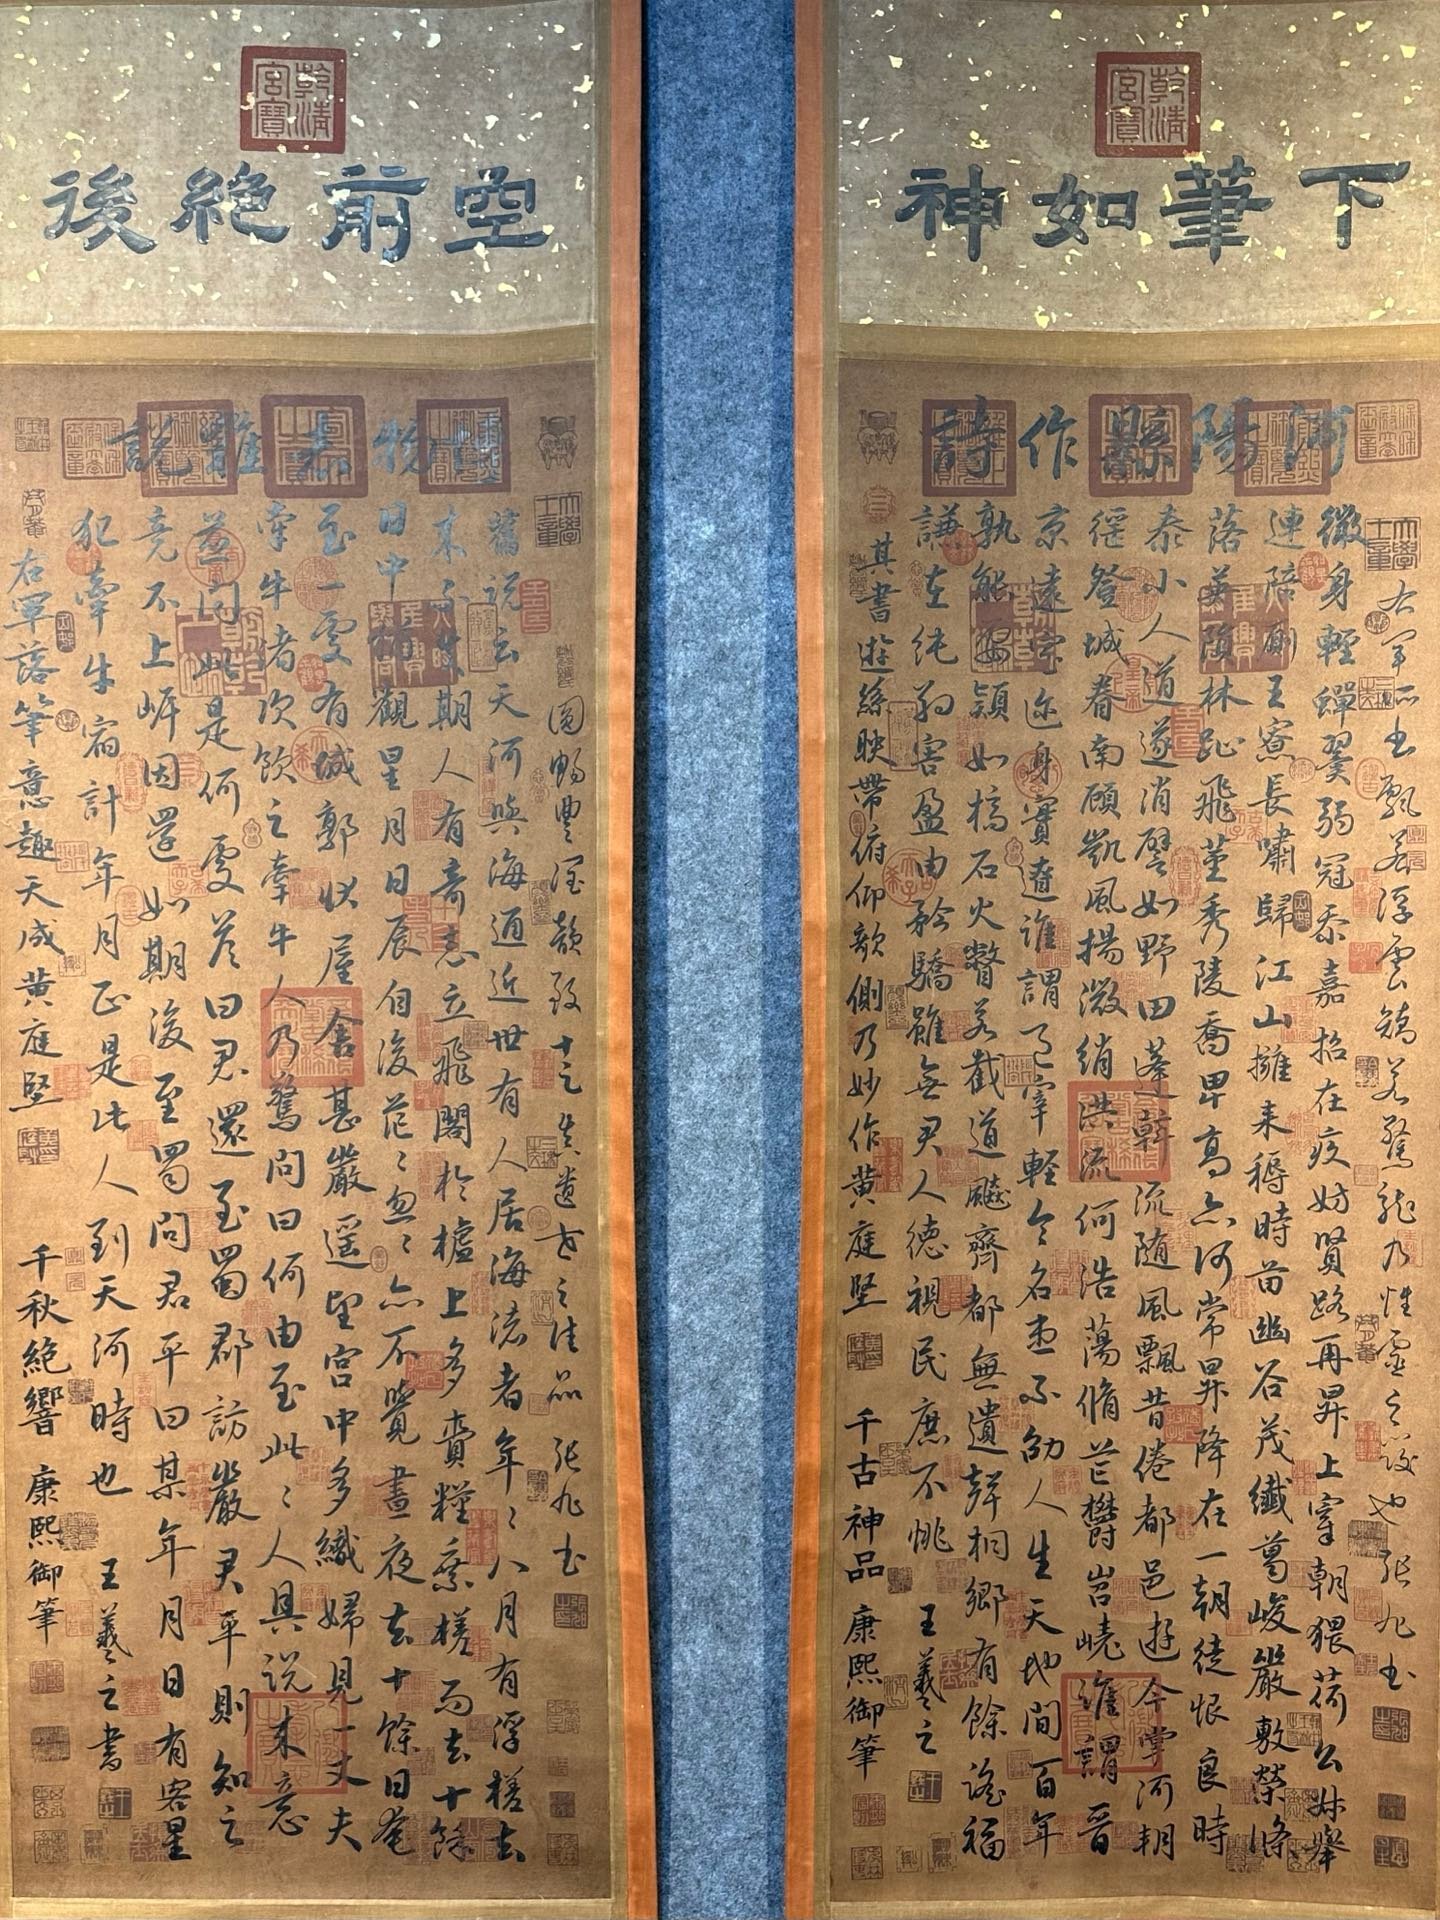 乾清宮寶
下筆如神
河陽縣作詩
右軍所書飄若浮雲矯若驚龍乃性靈之發也張旭書
微身輕蟬翼弱冠忝嘉招在疚妨賢路再昇上宰朝猥荷公叔舉
連陪廁王寮長嘯歸江山擁耒耨時苗幽谷茂纖葛峻巖敷榮條
落英隕林趾飛莖秀陵喬卑高亦何常昇降在一朝徒恨良時
泰小人道遂消譬如野田蓬斡流随風飄昔倦都邑遊今掌河朔
徭登城眷南顧凱風揚微綃洪流何浩蕩脩芒鬱岧嶢誰謂晉
京遠室迩身實遼誰謂邑宰輕令名患不劭人生天地間百年
孰能要頴如槁石火瞥若截道飈齊都無遺聲桐鄉有餘謠福
謙在純約害盈由矜驕雖無君人德視民庶不恌 王羲之
其書遊絲映帶俯仰欹側乃妙作黄庭堅 千古神品 康熙御筆
乾清宮寶
空前絕後
物志雜說
圓暢豐潤韻致十足真遺世之佳品 張旭書
舊說云天河與海通近世有人居海渚者年〻八月有浮槎去
來不失期人有奇志立飛閣於樝上多賫糧乘槎而去十餘
日中猶觀星月日辰自後茫〻忽〻亦不覺晝夜去十餘日奄
至一處有城郭狀屋舍甚嚴遥望宮中多織婦見一丈夫
牽牛者次飲之牽牛人乃驚問曰何由至此〻人具說來意
並問此是何處答曰君還至蜀郡訪嚴君平則知之
竟不上岸因還如期後至蜀問君平曰某年月日有客星
犯牽牛宿計年月正是此人到天河時也 王羲之書
右軍落筆意趣天成黄庭堅 千秋絕響 康熙御筆